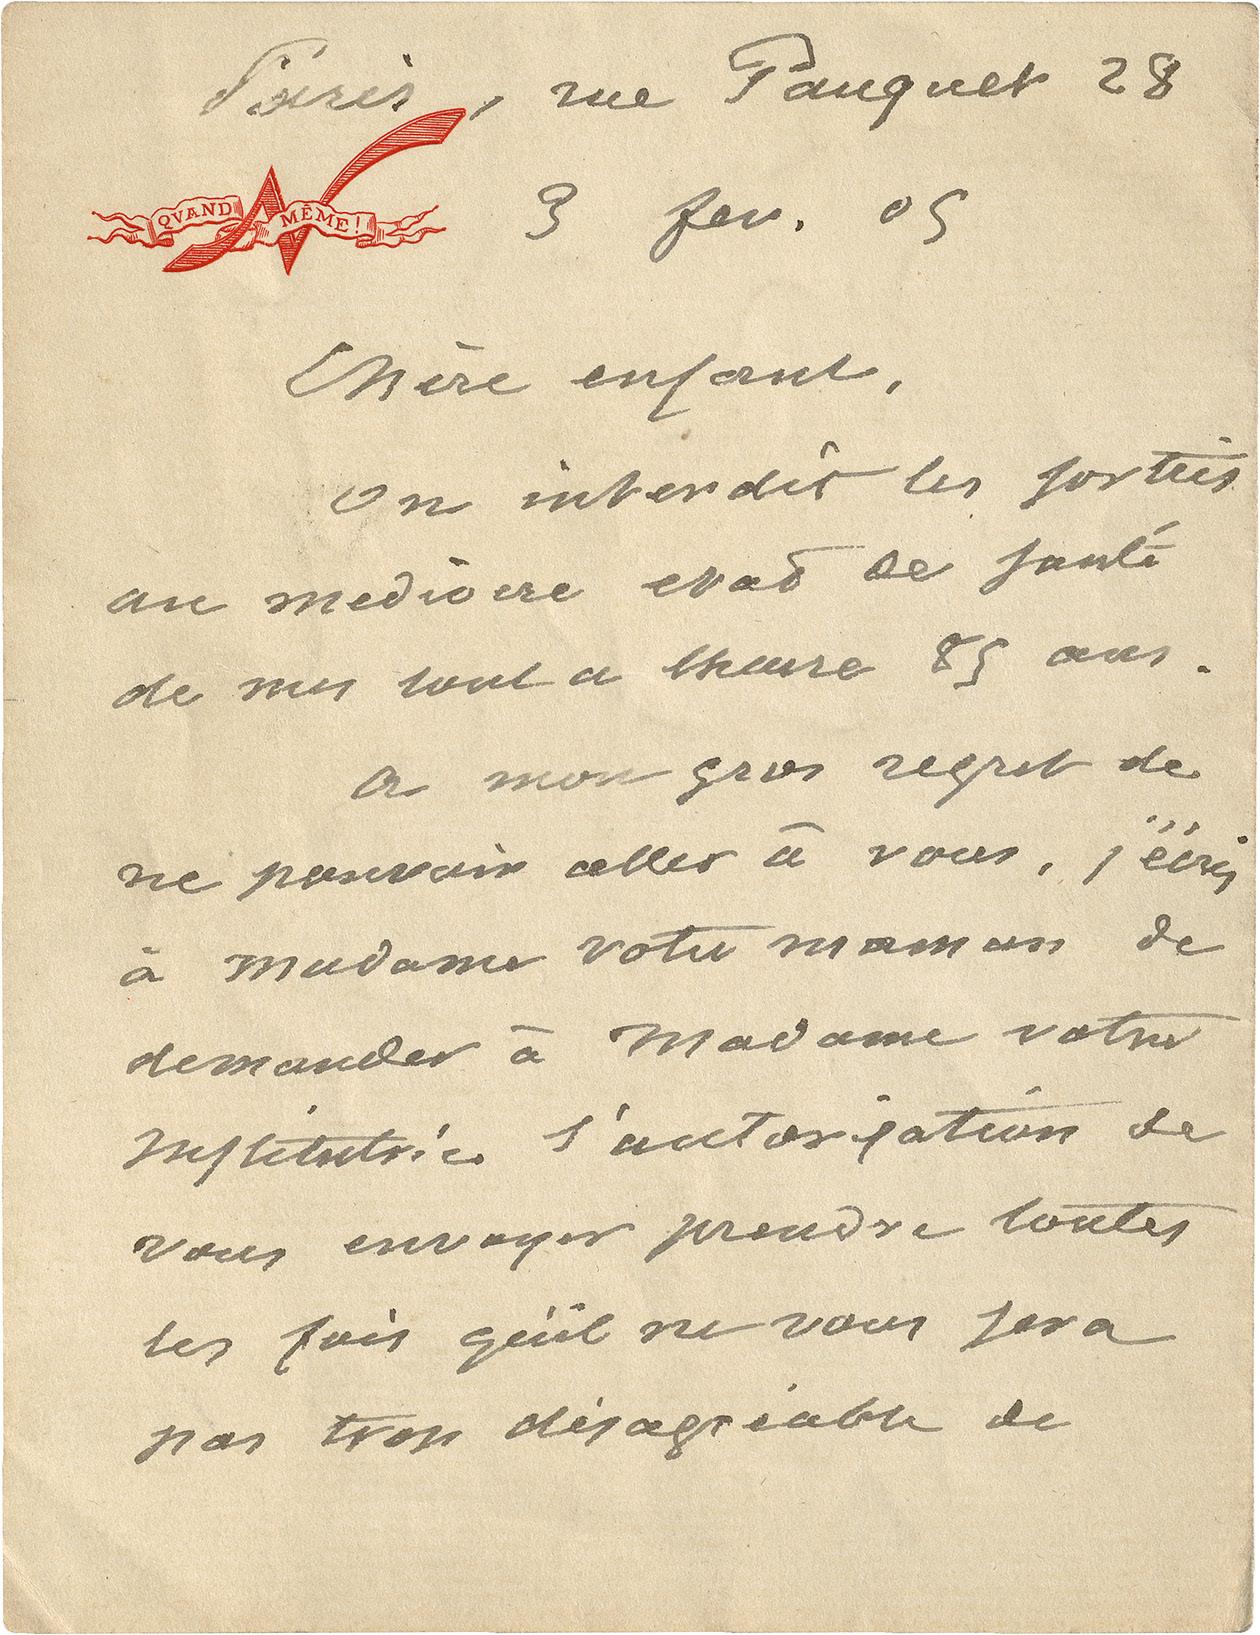 Paris, rue Pauquet 28
QVAND MÊME!
3 fev. 05
Chère enfant,
On interdit les sorties
au mediocre etat de santé
de mes tout a lheure 85 ans.
A mon gros regret de
ne pouvoir aller à vous, j'écris
à Madame votre maman de
demander à Madame votre
Institutrice l'autorisation de
vous envoyer prendre toutes
les fois qu'il ne vous sera
pas trop désagréable de